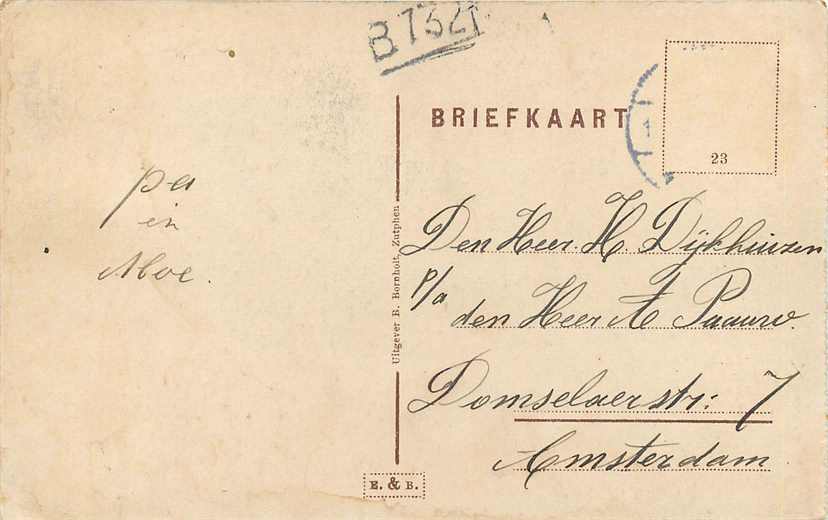 B 1321
BRIEFKAART
23
pa
en
Moe.
Den Heer. H. Dijkhuizen
p/a
den Heer A Paauw.
Domselaerstr: 7
Amsterdam
Uitgever B. Bornholt, Zutphen
E. & B.